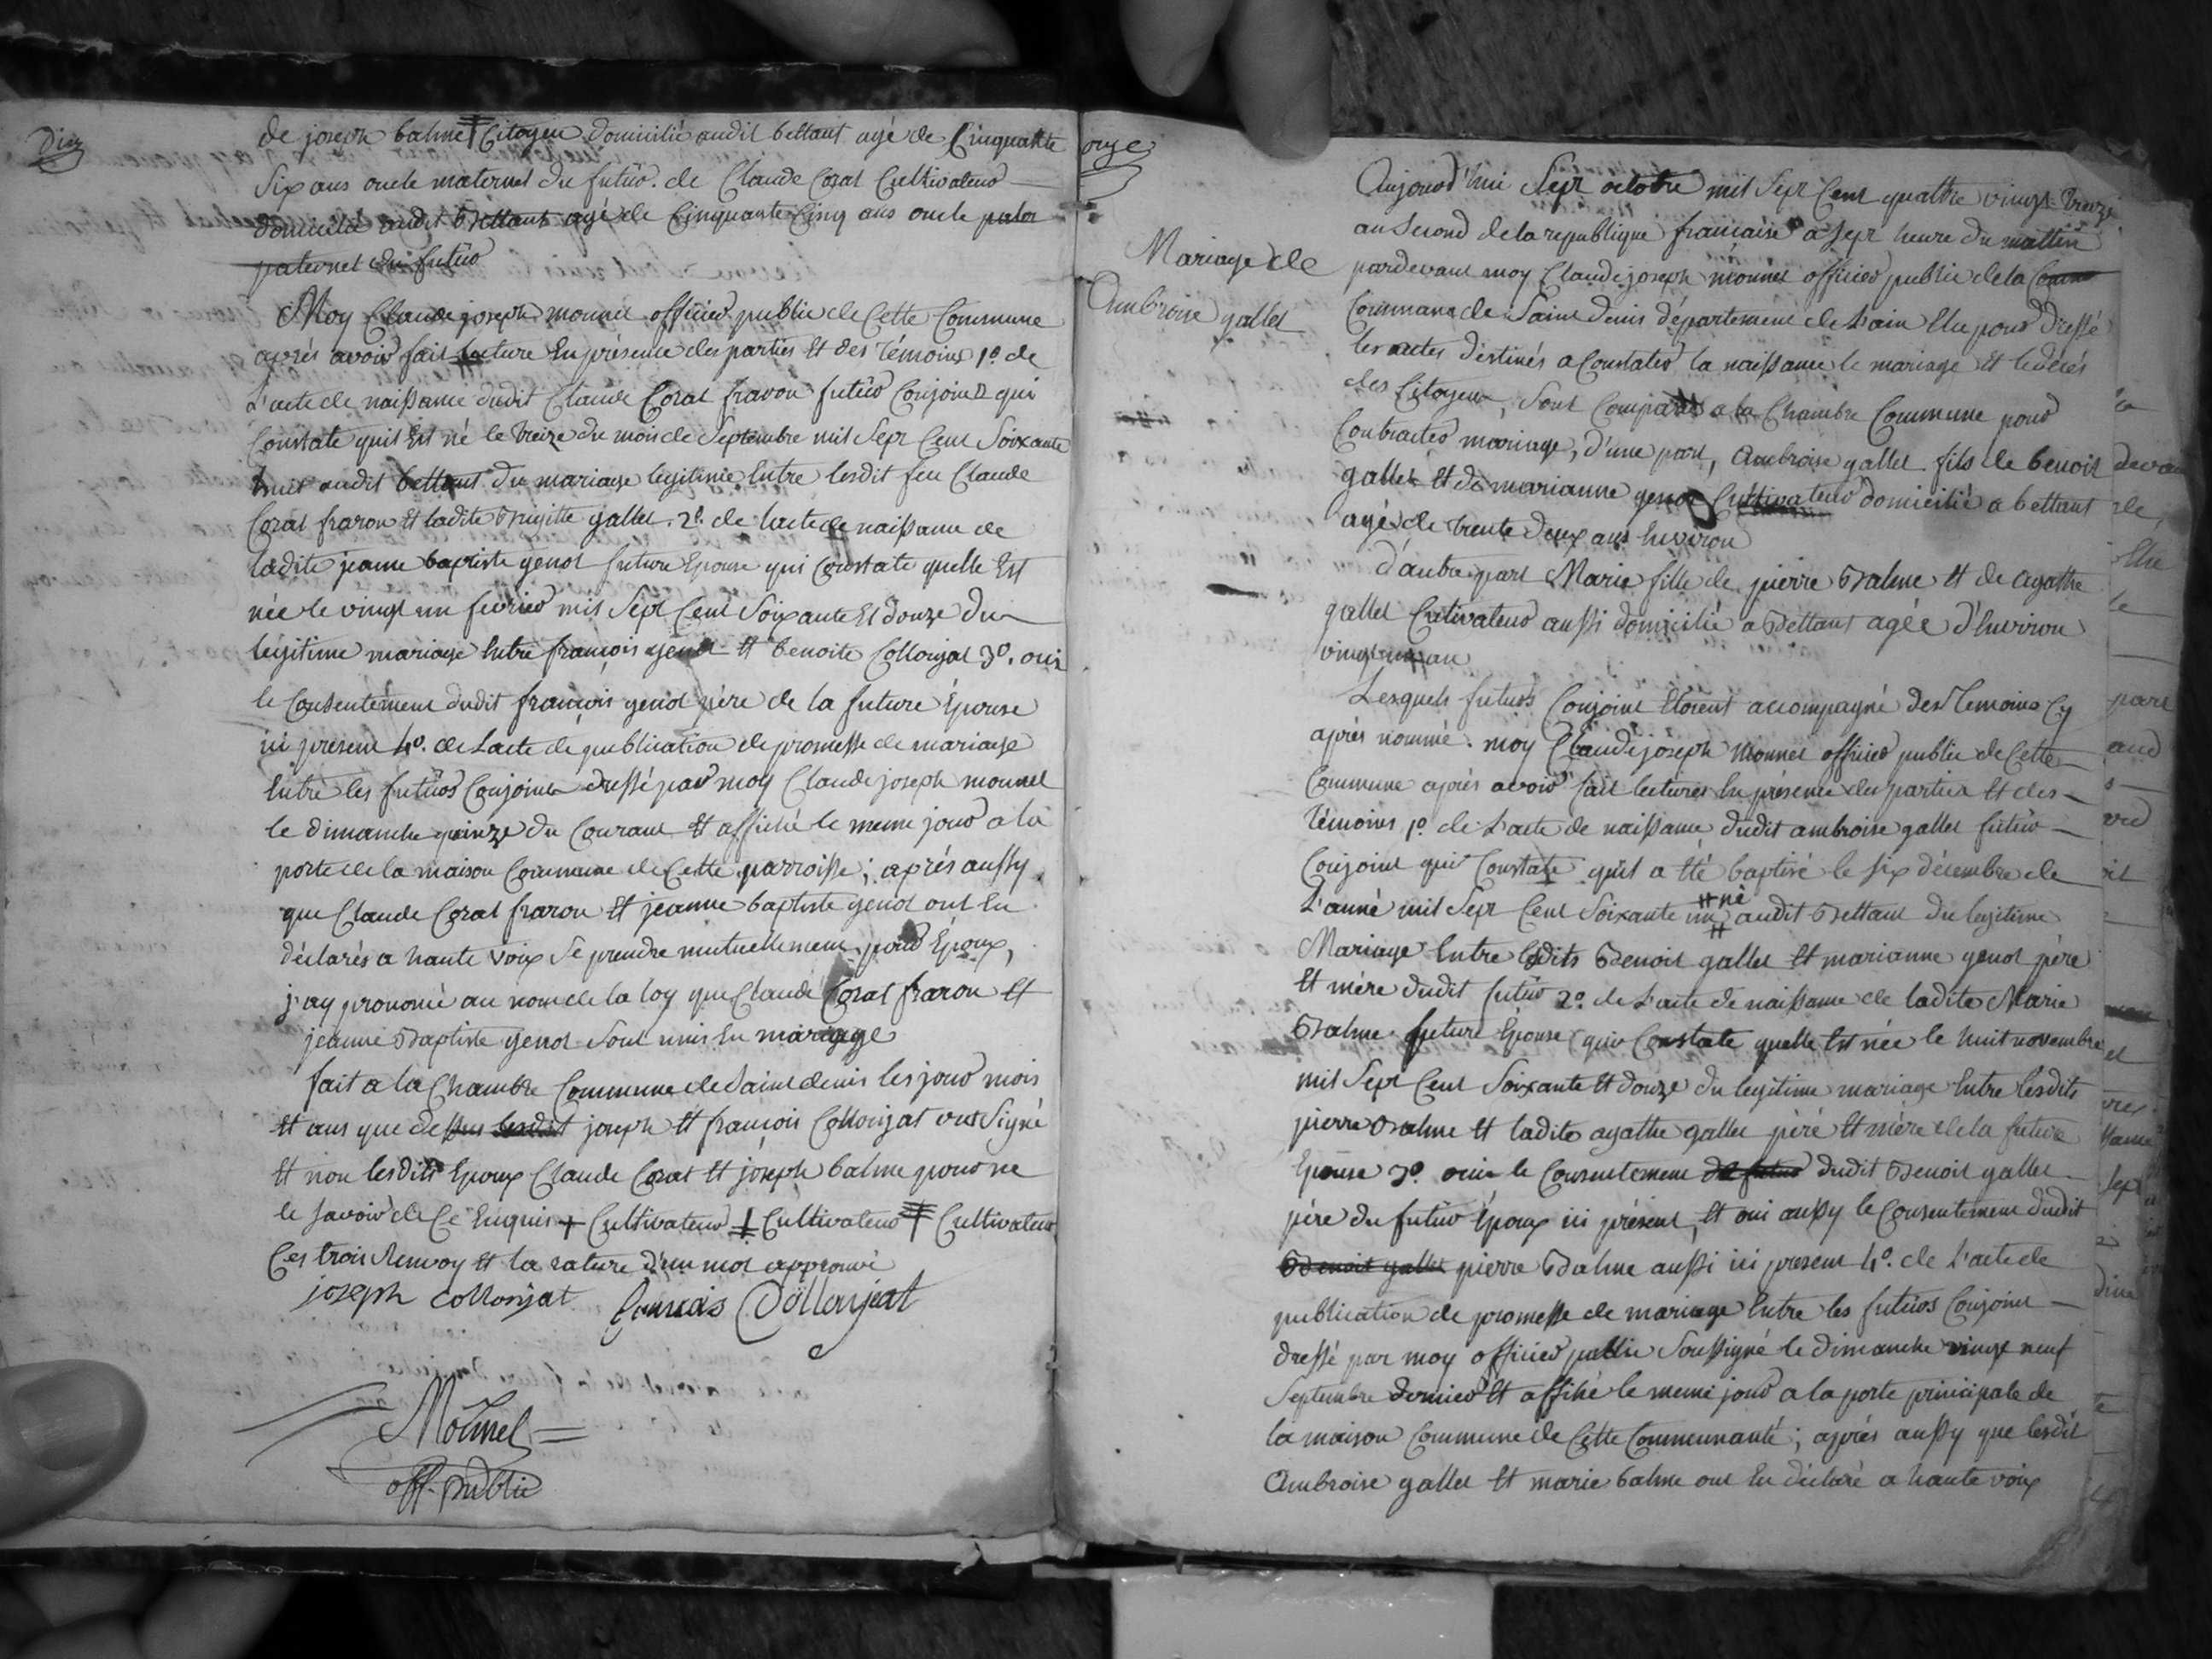 Dix
de joseph balme ‡ Citoyen domicilié audit bettant agé de Cinquante
Six ans oncle maternel du futur. de Claude Cozat Cultivateur
domicilié audit Bettant agé de Cinquante Cinq ans oncle pater
paternel du futur
Moy Claude joseph monnet officier public de Cette Commune
après avoir fait lecture En présence des parties Et des témoins 1º. de
L'acte de naissance dudit Claude Cozat fraron futur Conjoint qui
Constate quil Est né le treize du mois de Septembre mil Sept Cent Soixante
huit audit bettant du mariage legitime Entre lesdit feu Claude
Cozat fraron Et ladite Brigitte gallet. 2º. de lacte de naissance de
ladite jeanne baptiste genot future Epouse qui Constate quelle Est
née le vingt un fevrier mil Sept Cent Soixante Et douze du
légitime mariage Entre françois genot Et benoite Collonjat 3º. oui
le Consentement dudit françois genot père de la future Épouse
ici present 4º. de L'acte de publication de promesse de mariage
Entre les futurs Conjoins dressé par moy Claude joseph monnet
le dimanche quinze du Courant Et affiché le meme jour a la
porte de la maison Commune de Cette parroisse; après aussy
que Claude Cozat fraron Et jeanne baptiste genot ont Eu
déclarés a haute voix Se prendre mutuellement pour Époux,
j'ay prononcé au nom de la loy que Claude Cozat fraron Et
jeanne Baptiste genot Sont unis En mariage
fait a la Chambre Commune de Saint denis les jour mois
Et ans que dessus lesdit joseph Et françois Collonjat ont Signé
Et non lesdits Epoux Claude Cozat Et joseph balme pour ne
le Savoir de Ce Enquis + Cultivateur ‡ Cultivateur ‡ Cultivateur
Ces trois Renvoy Et la rature d'un mot approuvé
joseph collonjat françois Collonjeat
Monnet
off. public
onze
Mariage de
Ambroise gallet
Aujourd'hui Sept octobre mil Sept Cent quattre vingt treize
an Second de la republique française a Sept heure du mattin
pardevant moy Claude joseph monnet officier public de la Comm
Commune de Saint Denis département de L'ain Elu pour dressé
les actes destinés a Constater la naissance le mariage Et le décés
des Citoyens, Sont Comparus a la Chambre Commune pour
Contracter mariage, d'une part, Ambroise gallet fils de benoit
gallet Et de marianne genot Cultivateur domicilié a bettant
agé de trente deux ans Environ
d'autre part Marie fille de pierre Balme Et de agathe
gallet Cultivateur aussi domicilié a Bettant agée d'Environ
vingt un an
Lesquels futurs Conjoint Etoient accompagné des temoins Cy
après nommé. moy Claude joseph Monnet officier public de Cette
Commune après avoir fait lectures En présence des parties Et des
témoins 1º. de L'acte de naissance dudit ambroise gallet futur
Conjoint qui Constate quil a Eté baptisé le Six décembre de
né
L'anné mil Sept Cent Soixante un audit Bettant du legitime
Mariage Entre lesdits Benoit gallet Et marianne genot père
Et mère dudit futur 2º. de L'acte de naissance de ladite Marie
Balme future Épouse qui Constate quelle Est née le huit novembre
mil Sept Cent Soixante Et douze du legitime mariage Entre lesdits
pierre Balme Et ladite agathe gallet père Et mère de la future
Epouse 3º. ouie le Consentement du futur dudit Benoit gallet
père du futur Époux ici présent, Et oui aussy le Consentement dudit
Benoit gallet pierre Balme aussi ici present 4º. de L'acte de
publication de promesse de mariage Entre les futurs Conjoint
dressé par moy officier public Soussigné le dimanche vingt neuf
Septembre dernier Et affiché le meme jour a la porte principale de
la maison Commune de Cette Communauté; après aussy que lesdit
Ambroise gallet Et marie balme ont Eu déclaré a haute voix